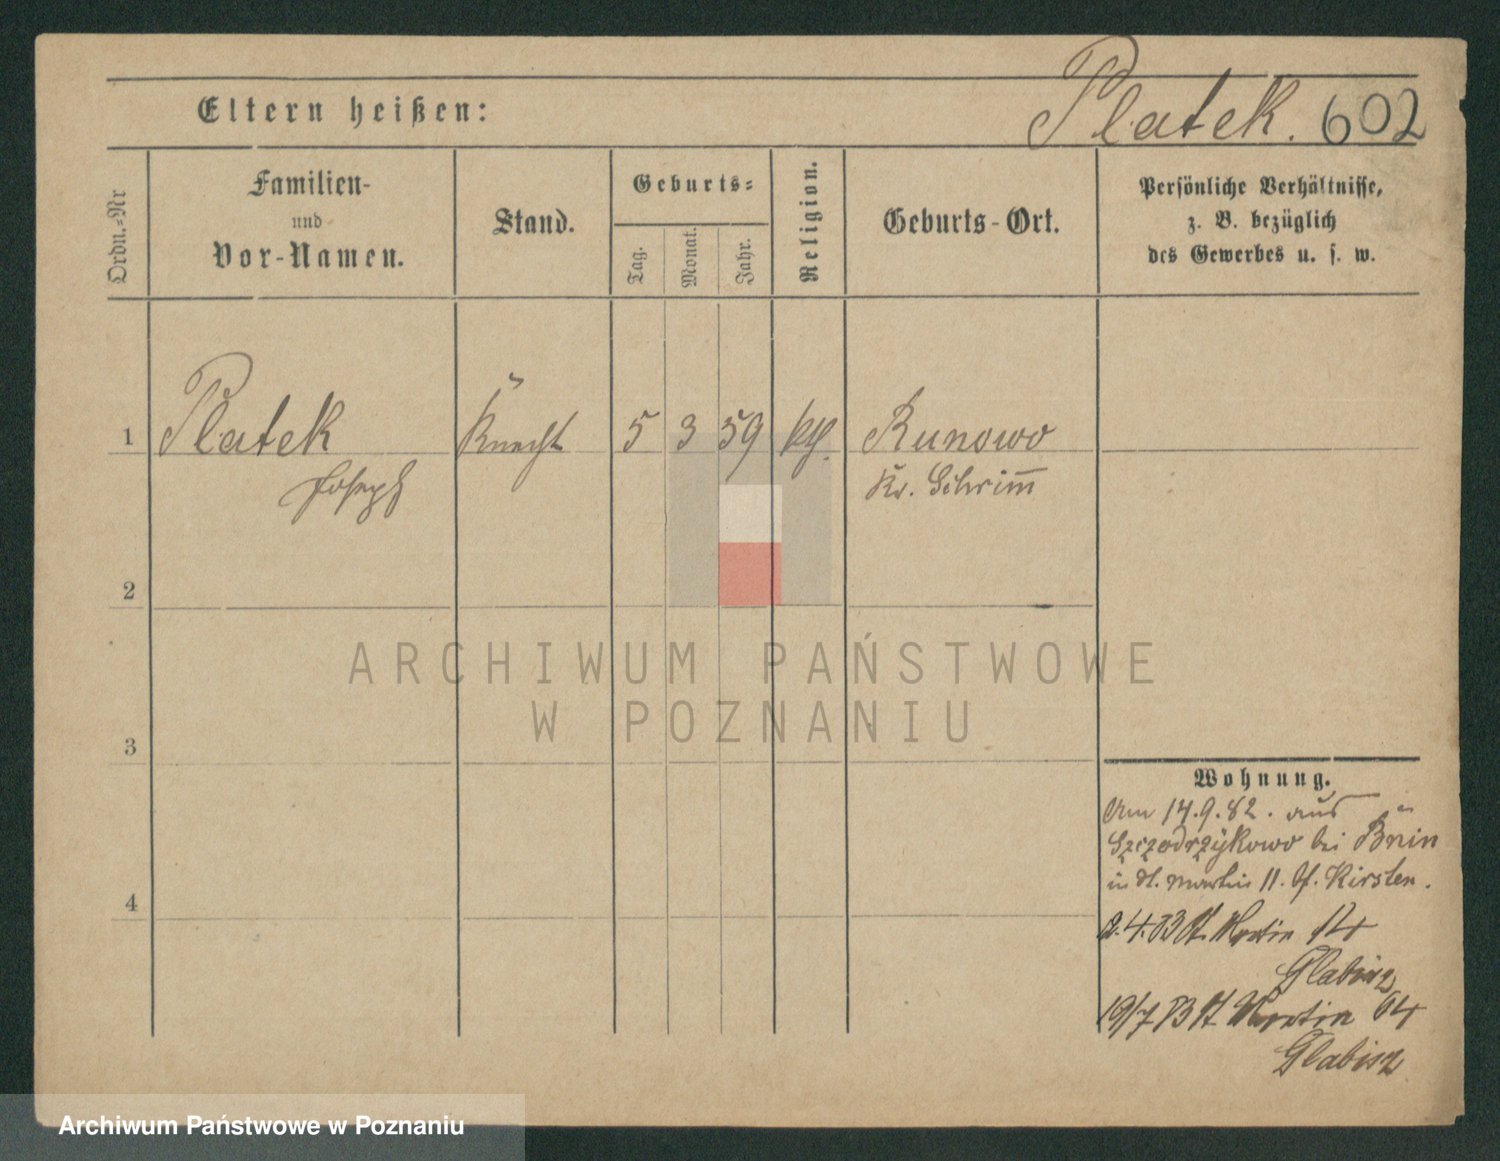 Eltern heißen:
Platek. 602
Ordn.-Nr
Familien-
und
Vor-Namen.
Stand.
Geburts-
Tag.
Monat.
Jahr.
Religion.
Geburts-Ort.
Persönliche Verhältnisse,
z. B. bezüglich
des Gewerbes u. s. w.
1 Platek Knecht 5 3 59 kth. Runowo
Joseph Kr. Schrim̅
2
3
4
ARCHIWUM PAŃSTWOWE
W POZNANIU
Wohnung.
14.9.82. aus
Szczodrzykowo bei Bnin
in St. Martin 11. bf. Kirsten.
2.4.83 St. Martin 14
Glabisz
19/7 83 St Martin 64
Glabisz
Archiwum Państwowe w Poznaniu